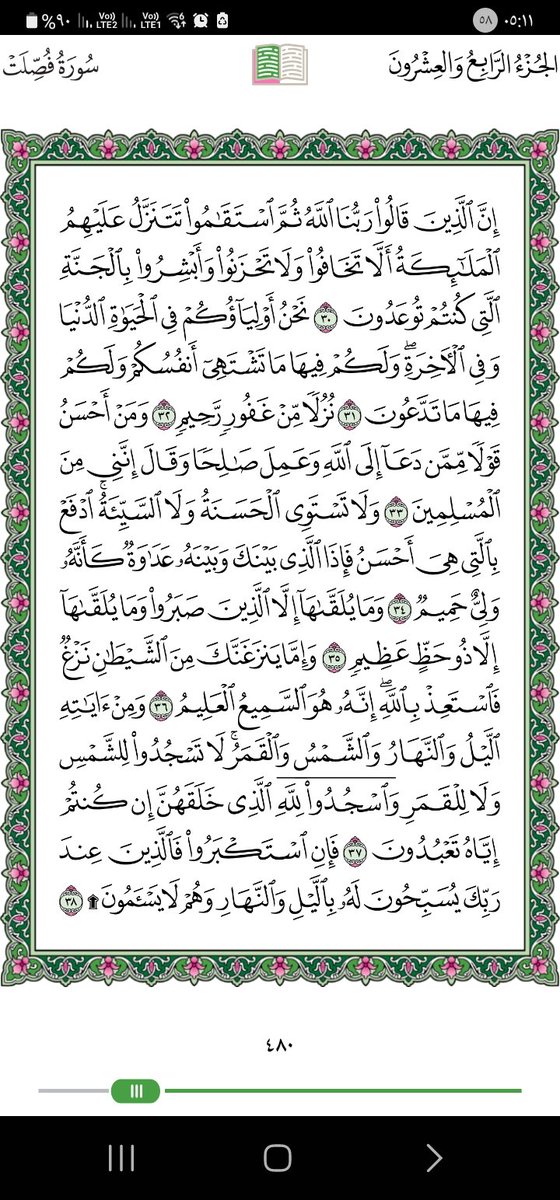 ٠٥:١١ ٥٨ %٩٠ Vo)) LTE2 Vo)) LTE1
الجُزْءُ الرَّابِعُ وَالعِشْرُونَ سُورَةُ فُصِّلَتْ
إِنَّ ٱلَّذِينَ قَالُوا۟ رَبُّنَا ٱللَّهُ ثُمَّ ٱسْتَقَٰمُوا۟ تَتَنَزَّلُ عَلَيْهِمُ
ٱلْمَلَٰٓئِكَةُ أَلَّا تَخَافُوا۟ وَلَا تَحْزَنُوا۟ وَأَبْشِرُوا۟ بِٱلْجَنَّةِ
ٱلَّتِى كُنتُمْ تُوعَدُونَ ٣٠ نَحْنُ أَوْلِيَآؤُكُمْ فِى ٱلْحَيَوٰةِ ٱلدُّنْيَا
وَفِى ٱلْءَاخِرَةِ ۖ وَلَكُمْ فِيهَا مَا تَشْتَهِىٓ أَنفُسُكُمْ وَلَكُمْ
فِيهَا مَا تَدَّعُونَ ٣١ نُزُلًا مِّنْ غَفُورٍ رَّحِيمٍ ٣٢ وَمَنْ أَحْسَنُ
قَوْلًا مِّمَّن دَعَآ إِلَى ٱللَّهِ وَعَمِلَ صَٰلِحًا وَقَالَ إِنَّنِى مِنَ
ٱلْمُسْلِمِينَ ٣٣ وَلَا تَسْتَوِى ٱلْحَسَنَةُ وَلَا ٱلسَّيِّئَةُ ۚ ٱدْفَعْ
بِٱلَّتِى هِىَ أَحْسَنُ فَإِذَا ٱلَّذِى بَيْنَكَ وَبَيْنَهُۥ عَدَٰوَةٌ كَأَنَّهُۥ
وَلِىٌّ حَمِيمٌ ٣٤ وَمَا يُلَقَّىٰهَآ إِلَّا ٱلَّذِينَ صَبَرُوا۟ وَمَا يُلَقَّىٰهَآ
إِلَّا ذُو حَظٍّ عَظِيمٍ ٣٥ وَإِمَّا يَنزَغَنَّكَ مِنَ ٱلشَّيْطَٰنِ نَزْغٌ
فَٱسْتَعِذْ بِٱللَّهِ ۖ إِنَّهُۥ هُوَ ٱلسَّمِيعُ ٱلْعَلِيمُ ٣٦ وَمِنْ ءَايَٰتِهِ
ٱلَّيْلُ وَٱلنَّهَارُ وَٱلشَّمْسُ وَٱلْقَمَرُ ۚ لَا تَسْجُدُوا۟ لِلشَّمْسِ
وَلَا لِلْقَمَرِ وَٱسْجُدُوا۟ لِلَّهِ ٱلَّذِى خَلَقَهُنَّ إِن كُنتُمْ
إِيَّاهُ تَعْبُدُونَ ٣٧ فَإِنِ ٱسْتَكْبَرُوا۟ فَٱلَّذِينَ عِندَ
رَبِّكَ يُسَبِّحُونَ لَهُۥ بِٱلَّيْلِ وَٱلنَّهَارِ وَهُمْ لَا يَسْـَٔمُونَ ۩ ٣٨
٤٨٠